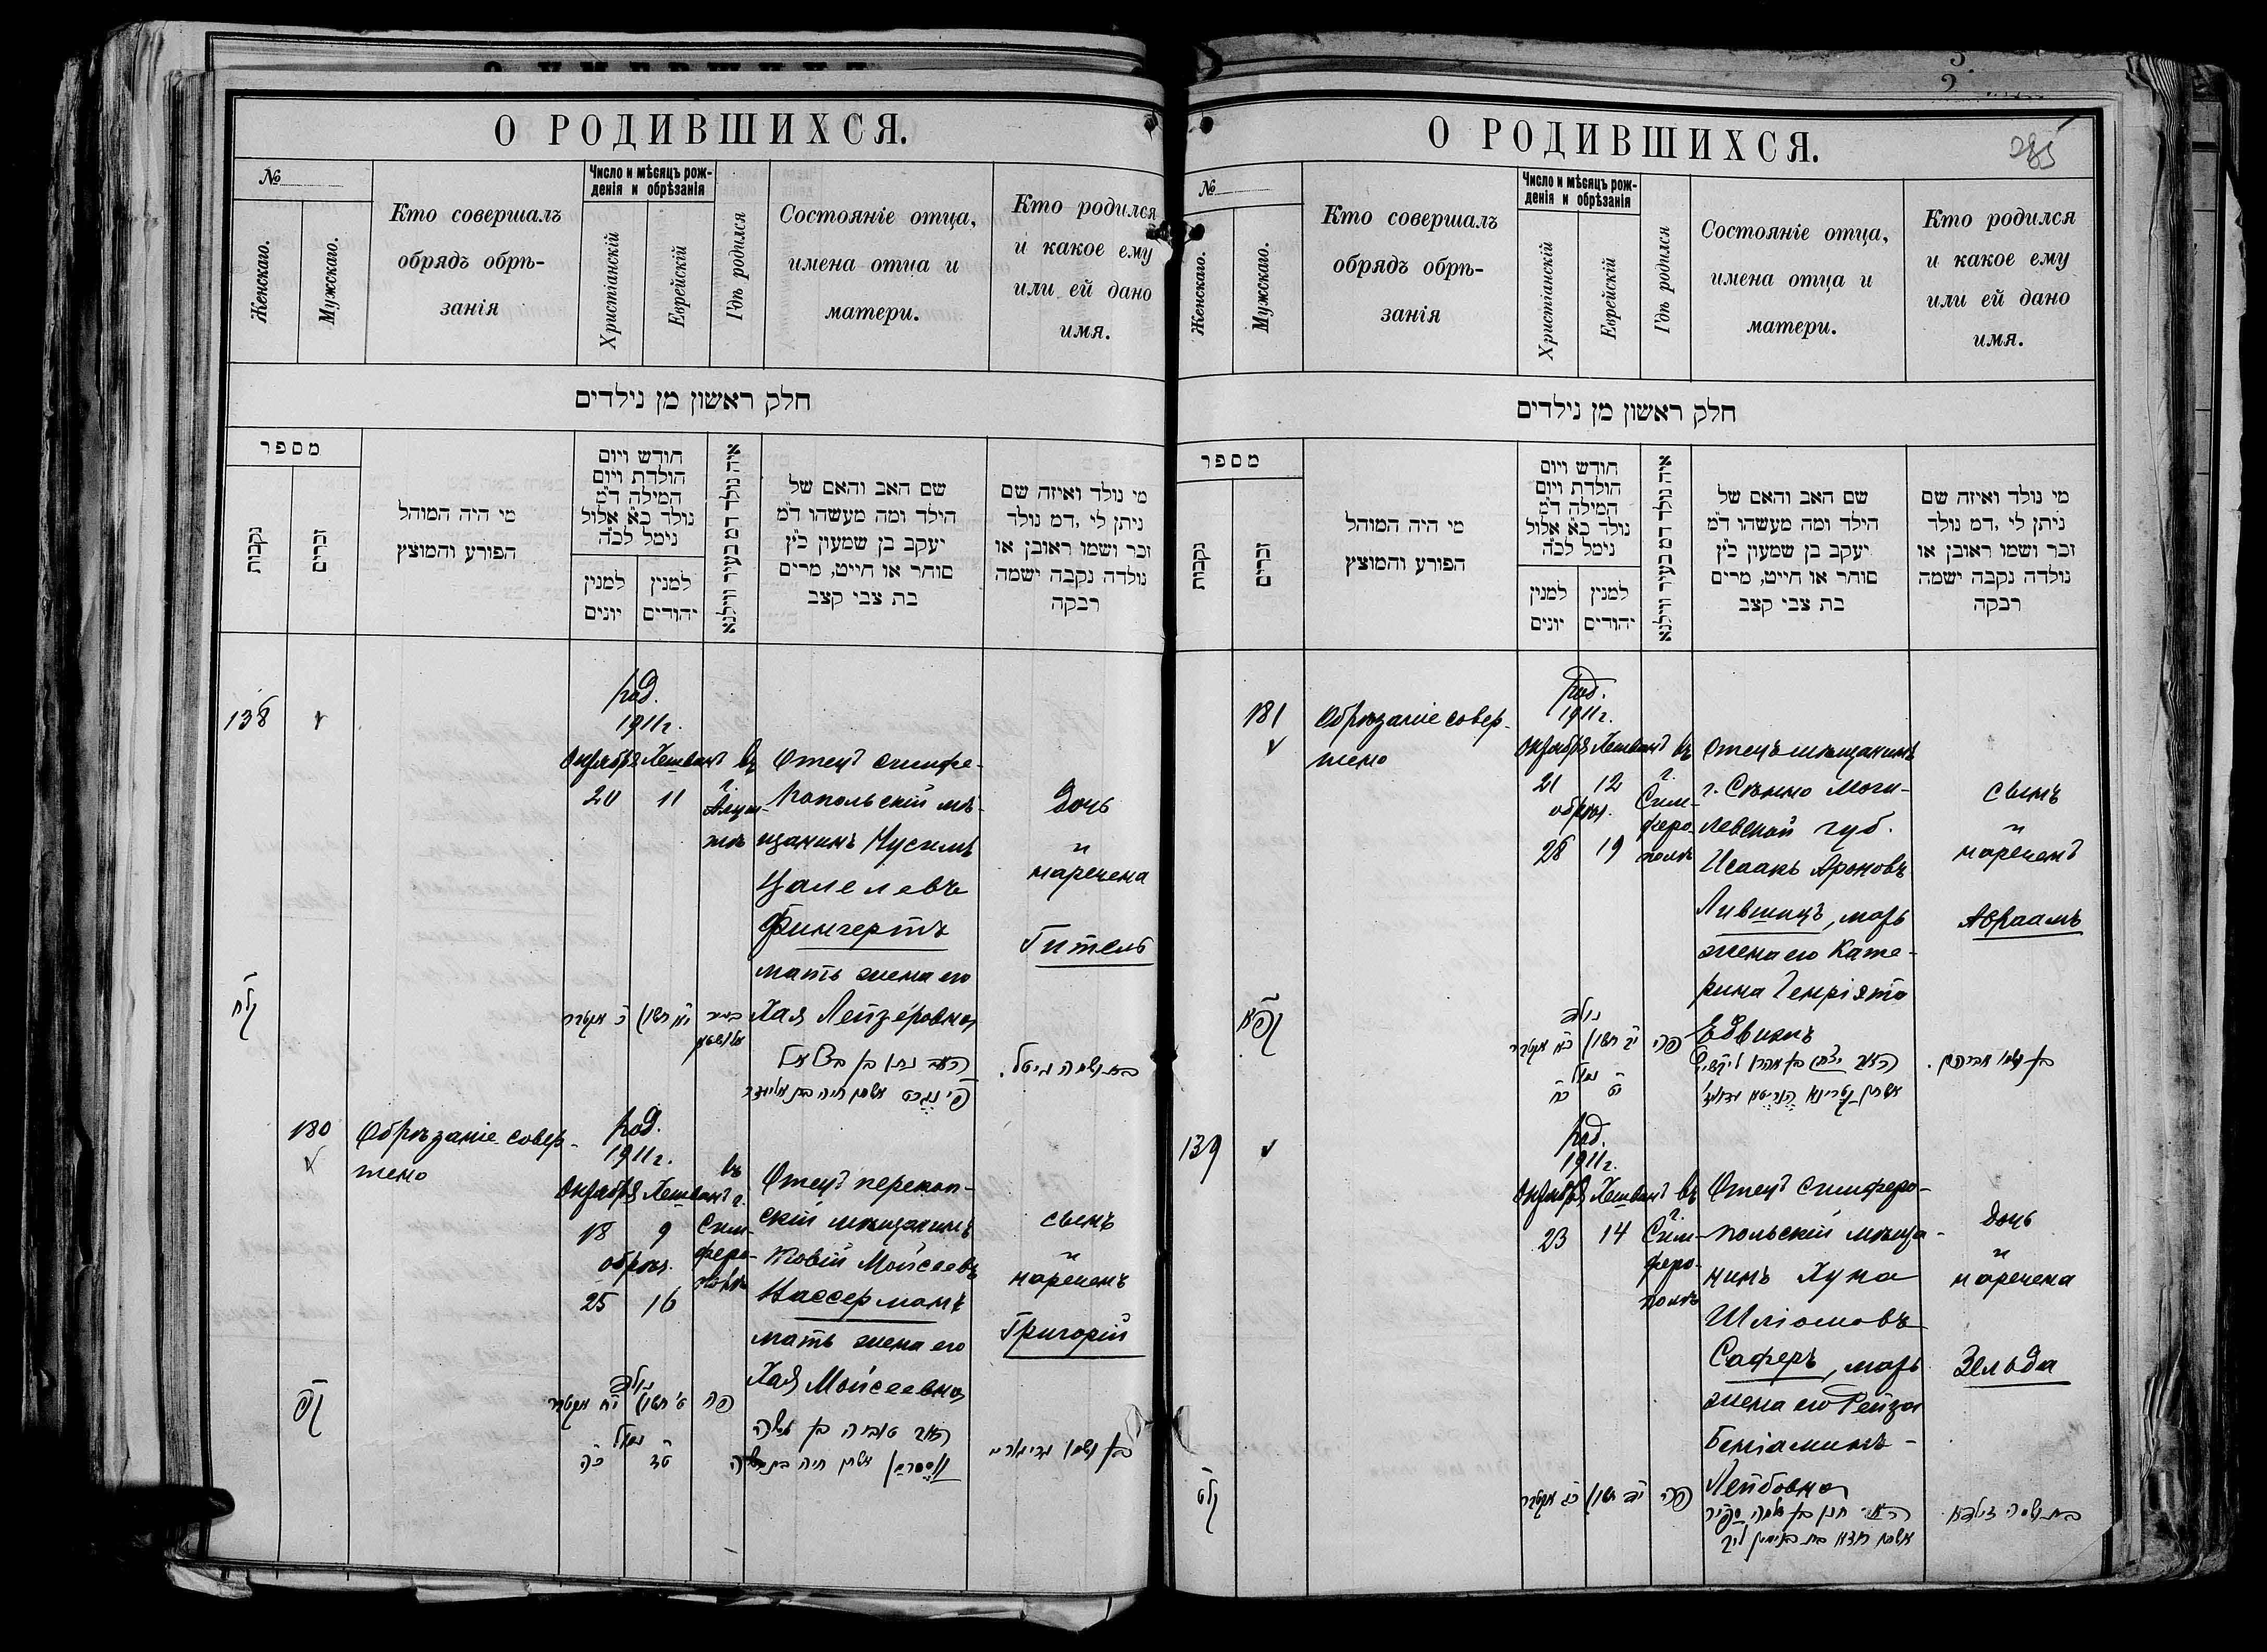 О РОДИВШИХСЯ.
№
Женскаго.
Мужскаго.
Кто совершалъ
обрядъ обрѣ-
занія
Число и мѣсяцъ рож-
денія и обрѣзанія
Христіанскій
Еврейскій
Гдѣ родился
Состояніе отца,
имена отца и
матери.
Кто родился
и какое ему
или ей дано
имя.
חלק ראשון מן נילדים
מספר
נקבות
זכרים
מי היה המוהל
הפורע והמוצץ
חודש ויום
הולדת ויום
המילה ד״מ
נולד כ״א אלול
נימל לכ״ה
למנין
יונים
למנין
יהודים
איה נולד דמ בעיר ווילנא
שם האב והאם של
הילד ומה מעשהו ד״מ
יעקב בן שמעון כ״ץ
סוחר או חייט, מרים
בת צבי קצב
מי נולד ואיזה שם
ניתן לי ,דמ נולד
זכר ושמו ראובן או
נולדה נקבה ישמה
רבקה
138
род.
1911 г.
Октября Хешванъ
20 11
въ
г.
Алуш-
тѣ
Отецъ симфе-
ропольскій мѣ-
щанинъ Нусимъ
Цалелевъ
Фингертъ
мать жена его
Хая Лейзеровна
Дочь
и
наречена
Гитель
קלח
כ׳ אקטבר
י״א חשון
180
Обрѣзаніе совер-
шено
род.
1911 г.
Октября Хешванъ
18 9
обрѣз.
25 16
въ
г.
Сим-
феро-
полѣ
Отецъ перекоп-
скій мѣщанинъ
Товій Мойсеевъ
Вассерманъ
мать жена его
Хая Мойсеевна
сынъ
и
нареченъ
Григорій
קפ
נולד
ט׳ חשון
נמול
ט״ז כ״ה
פה
טוביה בן משה
О РОДИВШИХСЯ.
285
№
Женскаго.
Мужскаго.
Кто совершалъ
обрядъ обрѣ-
занія
Число и мѣсяцъ рож-
денія и обрѣзанія
Христіанскій
Еврейскій
Гдѣ родился
Состояніе отца,
имена отца и
матери.
Кто родился
и какое ему
или ей дано
имя.
חלק ראשון מן נילדים
מספר
נקבות
זכרים
מי היה המוהל
הפורע והמוצץ
חודש ויום
הולדת ויום
המילה ד״מ
נולד כ״א אלול
נימל לכ״ה
למנין
יונים
למנין
יהודים
איה נולד דמ בעיר ווילנא
שם האב והאם של
הילד ומה מעשהו ד״מ
יעקב בן שמעון כ״ץ
סוחר או חייט, מרים
בת צבי קצב
מי נולד ואיזה שם
ניתן לי ,דמ נולד
זכר ושמו ראובן או
נולדה נקבה ישמה
רבקה
181
Обрѣзаніе совер-
шено
род.
1911 г.
Октября Хешванъ
21 12
обрѣз.
28 19
въ
г.
Сим-
феро-
полѣ
Отецъ мѣщанинъ
г. Сѣнно Моги-
левской губ.
Исаакъ Ароновъ
Лившицъ, мать
жена его Кате-
рина Генріэта
Едвигъ
сынъ
и
нареченъ
Авраамъ
קפא
נולד
י״ב חשון
נמול
י״ט כ״ח
פה
בן ושמו אברהם
139
род.
1911 г.
Октября Хешванъ
23 14
въ
г.
Сим-
феро-
полѣ
Отецъ симферо-
польскій мѣща-
нинъ Хуна
Шліомовъ
Саферъ, мать
жена его Рейза
Беніаминъ-
Лейбовна
дочь
и
наречена
Зельда
קלט
י״ד חשון
כ״ג אקטבר
פה
בת ושמה זילדא